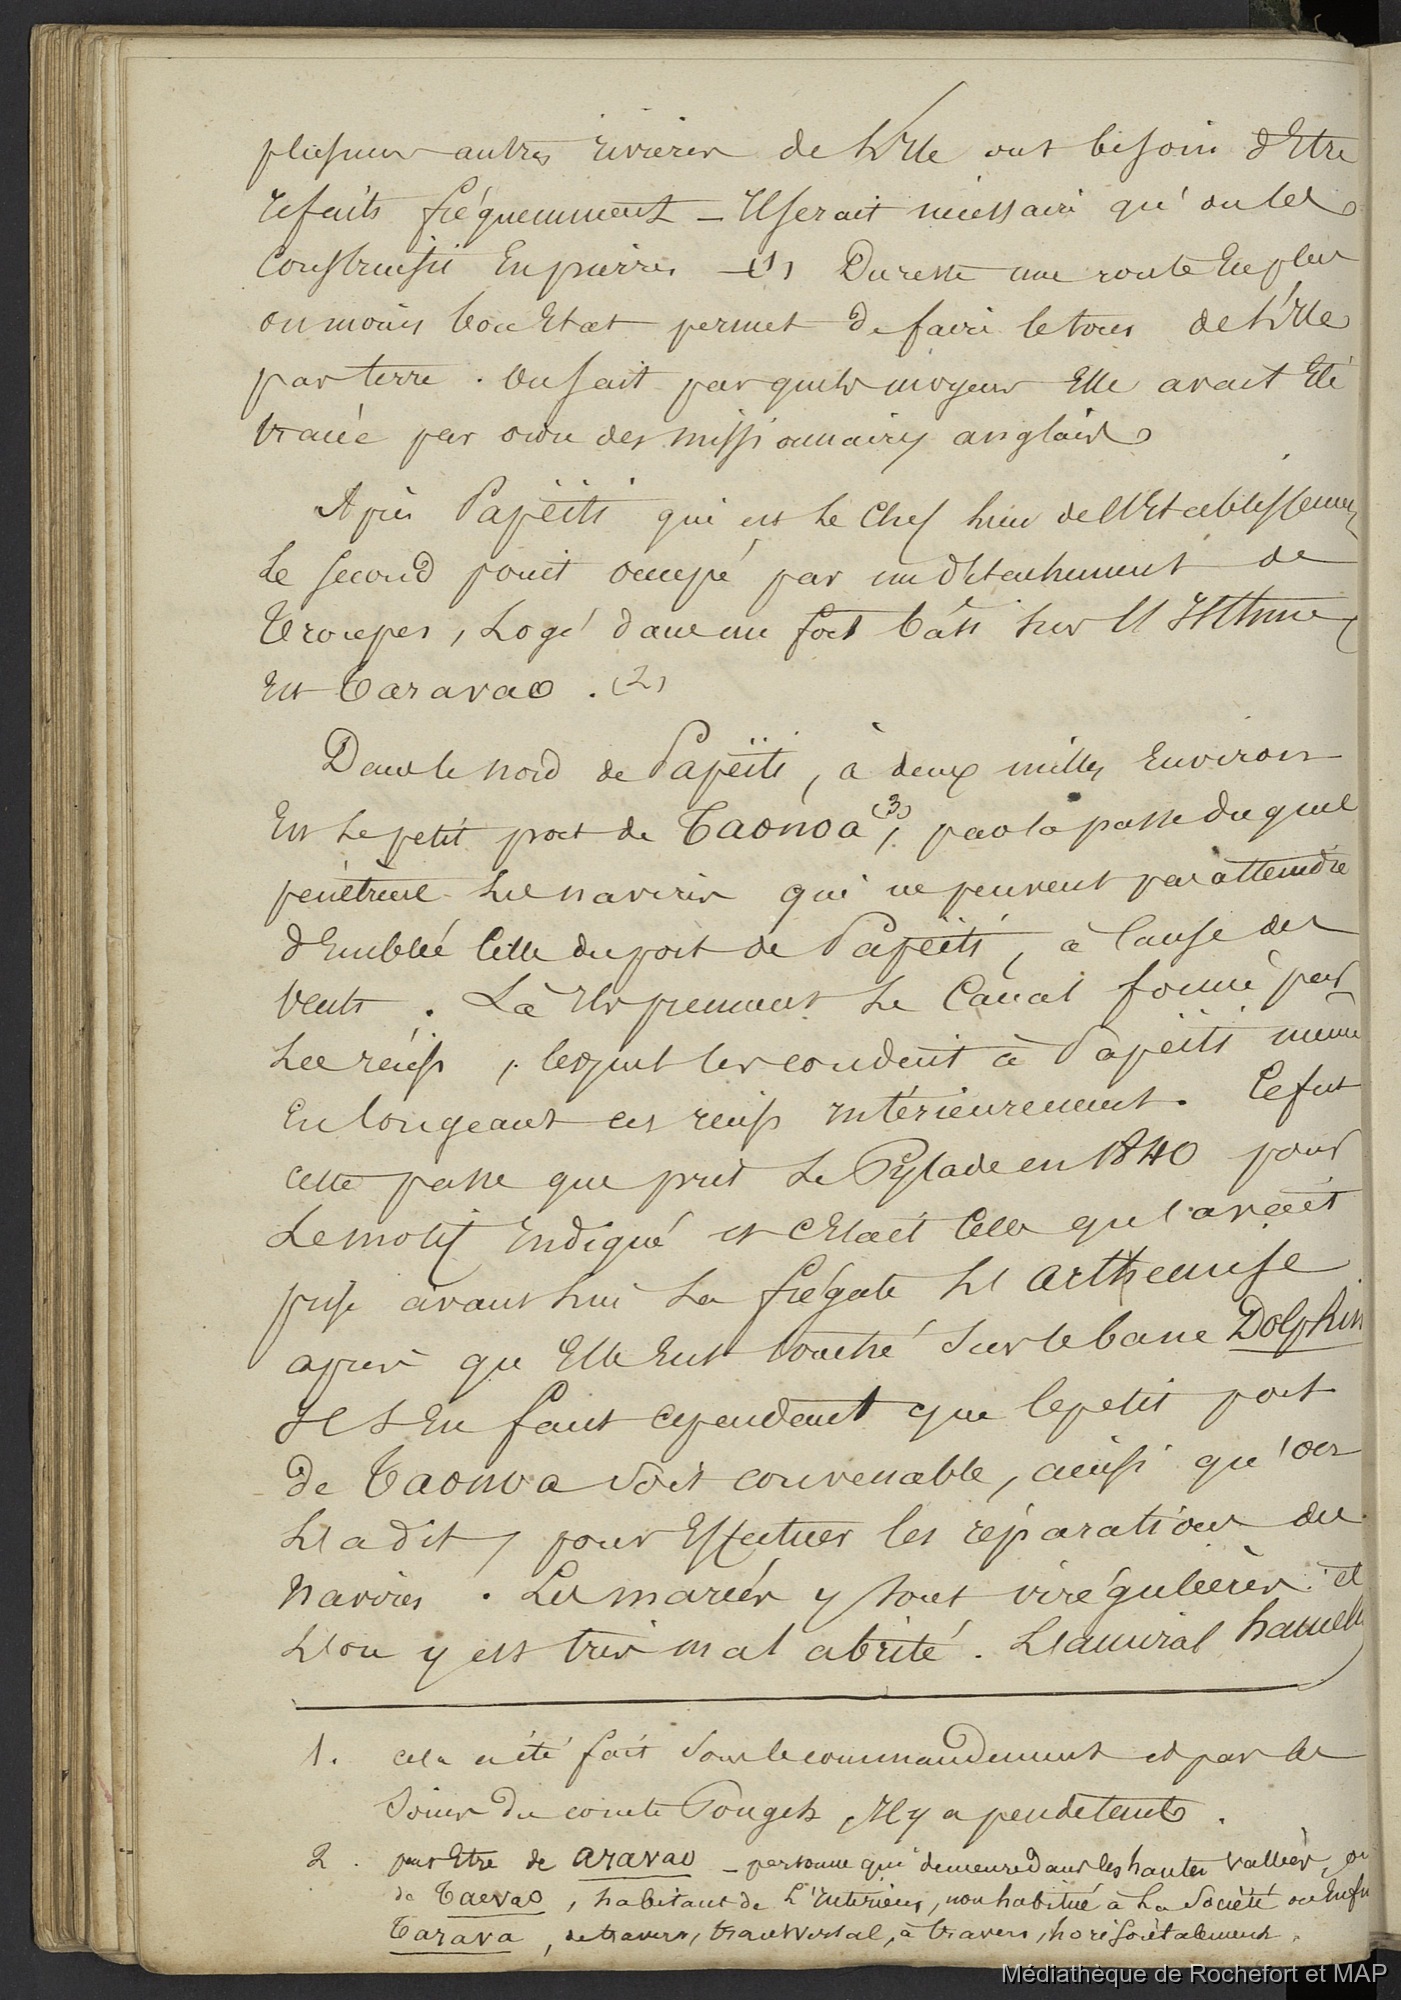 plusieurs autres rivières de l'Ile ont besoin d'Etre
refaits fréquemment _ Il serait nécessaire qu'on les
construisit En pierres _ (1) Du reste une route En plus
ou moins bon Etat permet de faire le tour de l'Ile
par terre . On sait par quels moyens Elle avait Eté
tracée par ordre des missionnaires anglais
Après Papëiti qui est le Chef lieu de l'Etablissement
Le second point occupé par un détachement de
Troupes , Logé dans un fort bâti sur l'Isthme
Est Taravao . (2)
Dans le nord de Papëiti , à deux milles Environ
Est Le petit port de Taonoa (3) , par la passe duquel
pénètrent les navires qui ne peuvent pas atteindre
d'Emblée Celle du port de Papëiti , à Cause des
Vents . Là Ils prennent Le Canal formé par
Les récifs , lequel les conduit à Papëiti même
En longeant ces récifs Intérieurement . Ce fut
cette passe que prit Le Pylade en 1840 pour
Le motif Indiqué et c'Etait Celle qu'avait
prise avant lui La frégate L'Arthémise
après qu'Elle Eut touché sur le banc Dolphin
Il s'En faut cependant que le petit port
de Taonoa soit convenable , ainsi qu'on
L'a dit , pour Effectuer les réparations du
Navires . Les marées y sont irrégulières et
L'on y est très mal abrité . L'amiral hamelin
1 . cela a été fait sous le commandement et par les
soins du comte Pouget , Il y a peu de temps .
2 . peut Etre de aravao _ personne qui demeure Dans les hautes vallées , ou
de Taevao , habitant de L'Intérieur , non habitué à La Société ou Enfin
Tarava , de travers , transversal , à travers , horisontalement .
Médiathèque de Rochefort et MAP